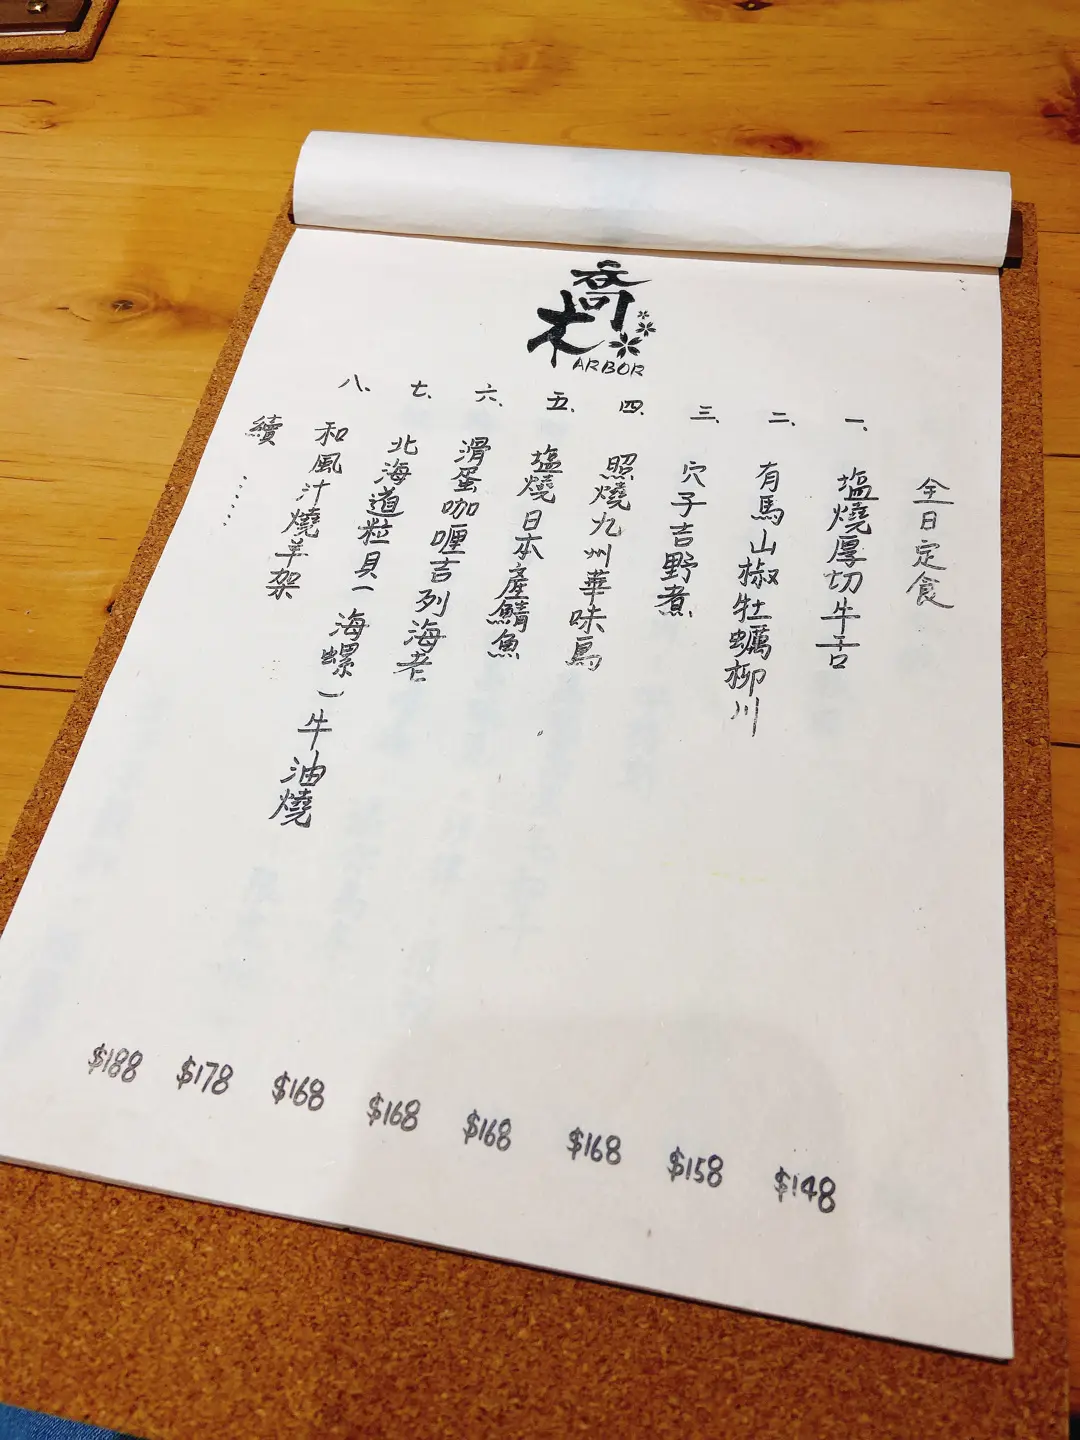 喬木
ARBOR
全日定食
一、塩燒厚切牛舌
二、有馬山椒牡蠣柳川
三、穴子吉野煮
四、照燒九州華味鳥
五、塩燒日本產鯖魚
六、滑蛋咖喱吉列海老
七、北海道粒貝(海螺)牛油燒
八、和風汁燒羊架
續......
$148
$158
$168
$168
$168
$168
$178
$188